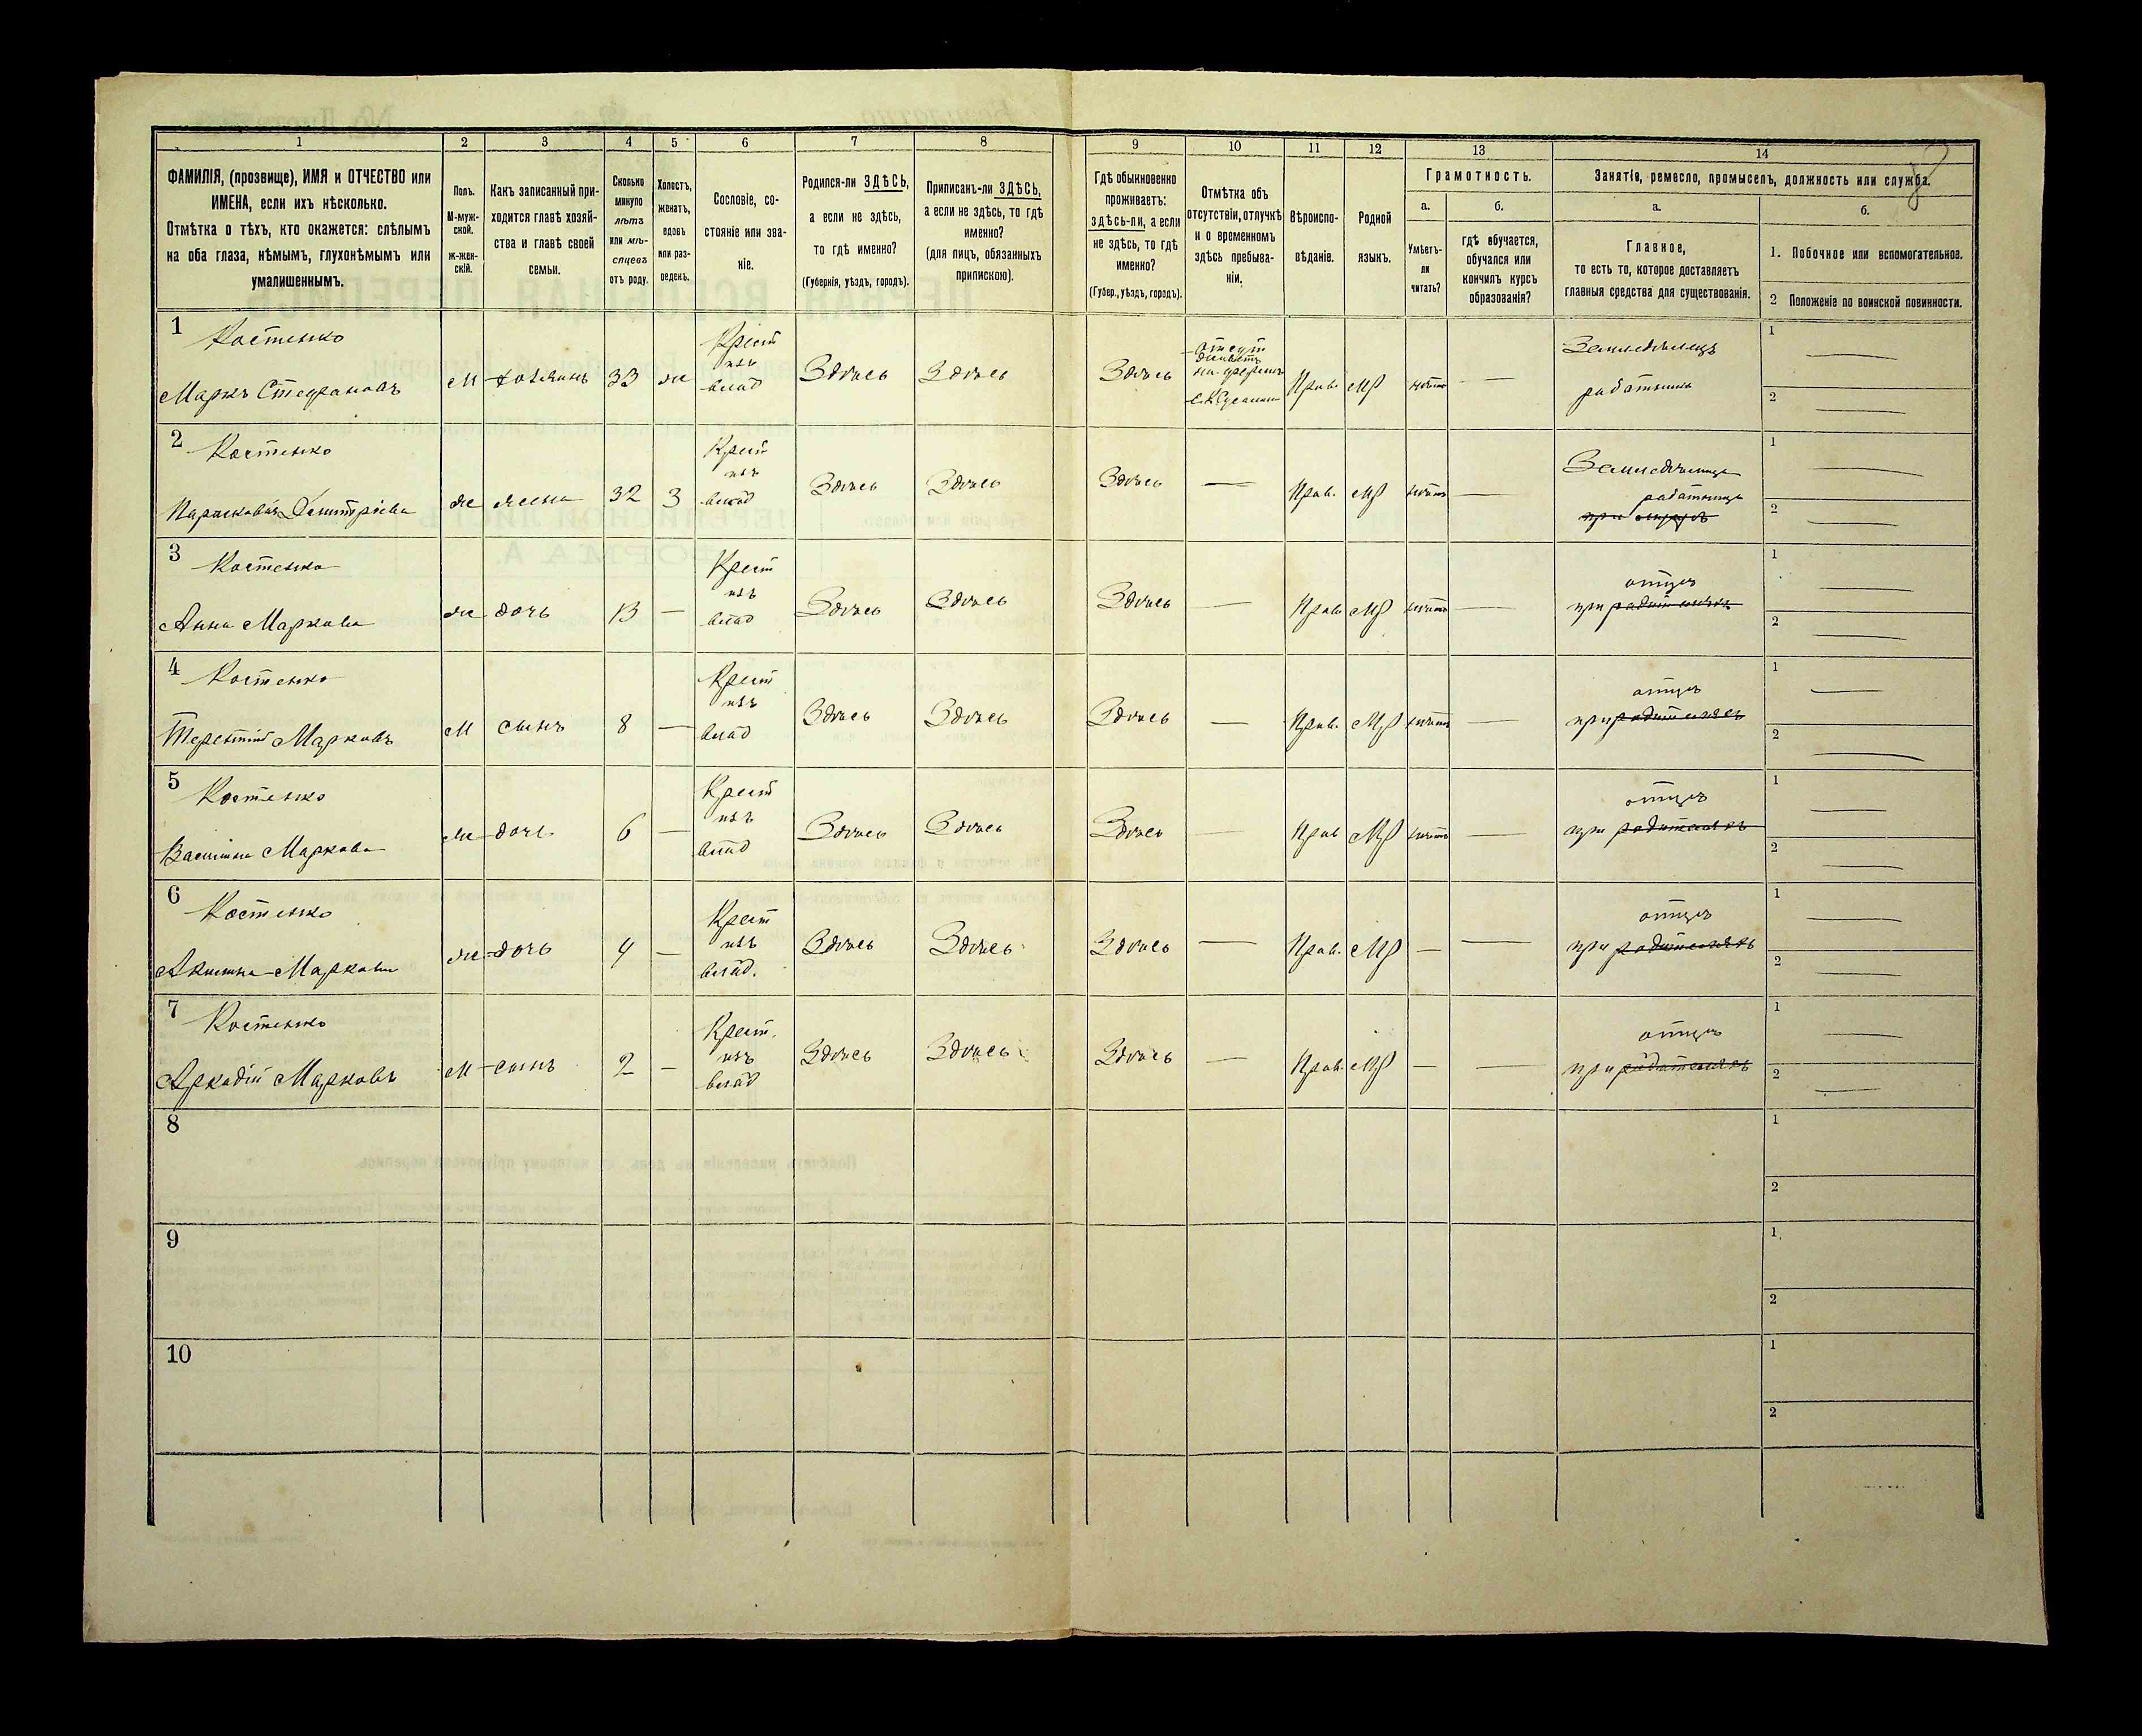 1 2 3 4 5 6 7 8 9 10 11 12 13 14
ФАМИЛІЯ, (прозвище), ИМЯ и ОТЧЕСТВО или
ИМЕНА, если ихъ нѣсколько.
Отмѣтка о тѣхъ, кто окажется: слѣпымъ
на оба глаза, нѣмымъ, глухонѣмымъ или
умалишеннымъ.
Полъ.
М-муж-
ской.
ж-жен-
скій.
Какъ записанный при-
ходится главѣ хозяй-
ства и главѣ своей
семьи.
Сколько
минуло
лѣтъ
или мѣ-
сяцевъ
отъ роду.
Холостъ,
женатъ,
вдовъ
или раз-
веденъ.
Сословіе, со-
стояніе или зва-
ніе.
Родился-ли ЗДѢСЬ,
а если не здѣсь,
то гдѣ именно?
(Губернія, уѣздъ, городъ).
Приписанъ-ли ЗДѢСЬ,
а если не здѣсь, то гдѣ
именно?
(для лицъ, обязанныхъ
припискою).
Гдѣ обыкновенно
проживаетъ:
здѣсь-ли, а если
не здѣсь, то гдѣ
именно?
(Губер., уѣздъ, городъ).
Отмѣтка объ
отсутствіи, отлучкѣ
и о временномъ
здѣсь пребыва-
ніи.
Вѣроиспо-
вѣданіе.
Родной
языкъ.
Грамотность.
а.
Умѣетъ-
ли
читать?
б.
гдѣ обучается,
обучался или
кончилъ курсъ
образованія?
Занятіе, ремесло, промыселъ, должность или служба.
а.
Главное,
то есть то, которое доставляетъ
главныя средства для существованія.
б.
1. Побочное или вспомогательное.
2 Положеніе по воинской повинности.
1
Костенко
Маркъ Стефановъ
М хозяинъ 33 ж
Крест
изъ
влад
Здѣсь Здѣсь Здѣсь
Прав. Мр нѣтъ —
Земледѣлецъ
работникъ
1 —
2 —
2
Костенко
Дмитріева
ж жена 32 3
Крест
изъ
влад
Здѣсь Здѣсь Здѣсь — Прав. Мр нѣтъ —
Земледѣлица
работница
1 —
2 —
3
Костенко
Анна Маркова
ж дочь 13 —
Крест
изъ
влад
Здѣсь Здѣсь Здѣсь — Прав Мр нѣтъ —
отцѣ
при родителяхъ
1 —
2 —
4
Костенко
Терентій Марковъ
М сынъ 8 —
Крест
изъ
влад
Здѣсь Здѣсь Здѣсь — Прав. Мр нѣтъ —
отцѣ
при родителяхъ
1 —
2 —
5
Костенко
Маркова
ж дочь 6 —
Крест
изъ
влад
Здѣсь Здѣсь Здѣсь — Прав Мр нѣтъ —
отцѣ
при родителяхъ
1 —
2 —
6
Костенко
Маркова
ж дочь 4 —
Крест
изъ
влад.
Здѣсь Здѣсь Здѣсь — Прав. Мр — —
отцѣ
при родителяхъ
1 —
2 —
7
Костенко
Аркадій Марковъ
М сынъ 2 —
Крест.
изъ
влад
Здѣсь Здѣсь Здѣсь — Прав. Мр — —
отцѣ
при родителяхъ
1 —
2 —
8
1
2
9
1
2
10
1
2